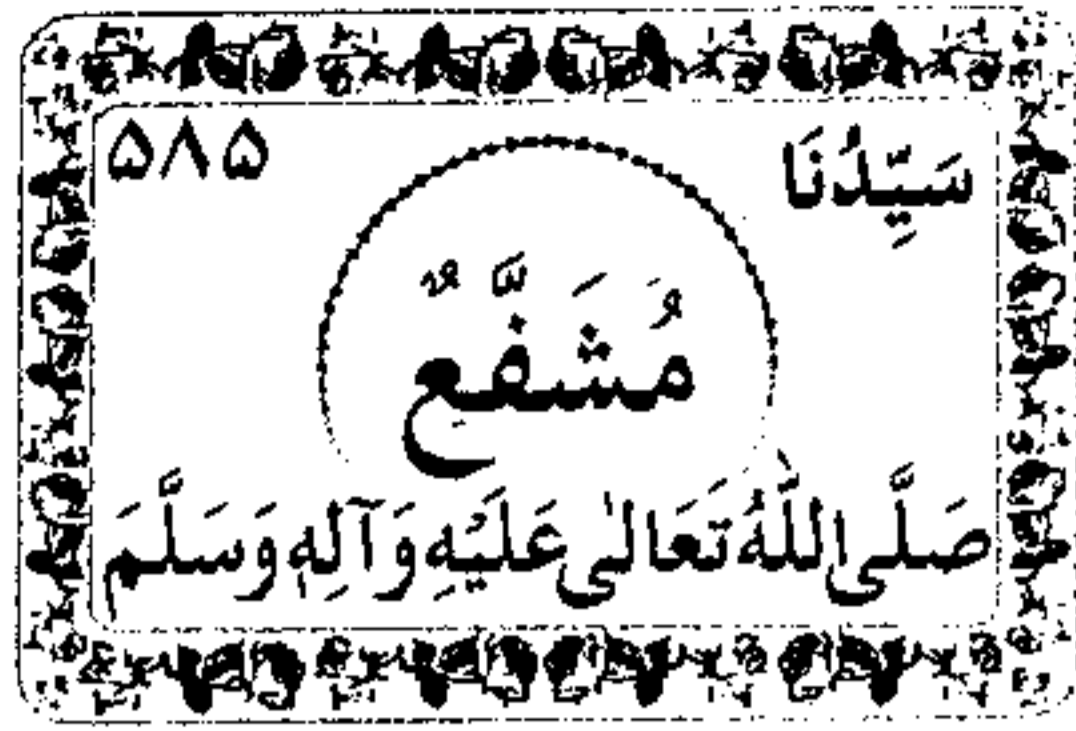 سَيِّدُنَا ۵۸۵
مُشَفَّعٌ
صَلَّی اللّٰهُ تَعَالٰی عَلَيْهِ وَآلِهٖ وَسَلَّمَ